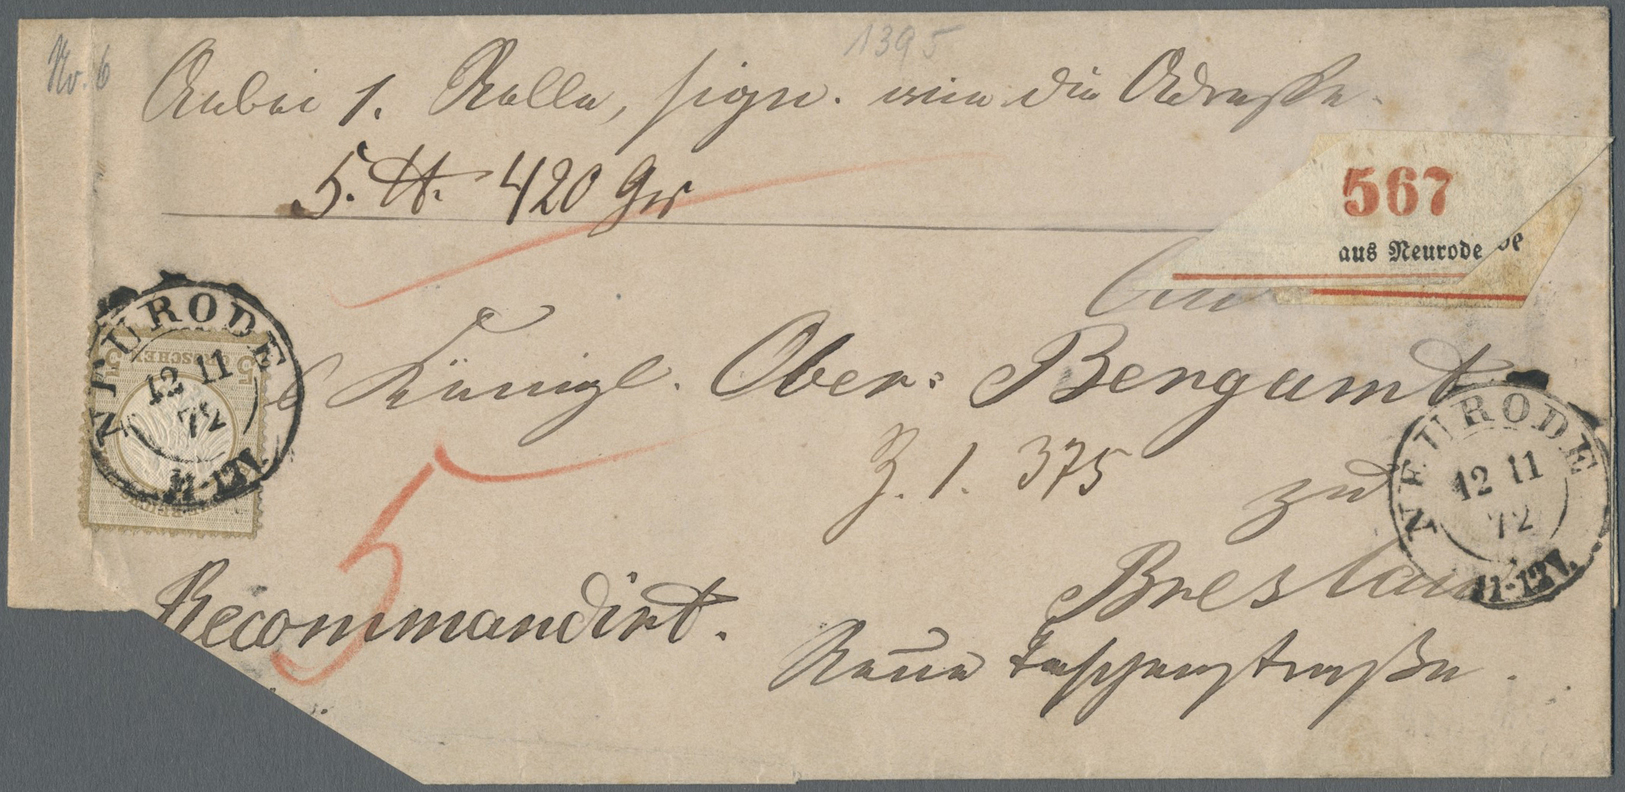 No. 6
1395
Anbei 1. Rolle, sign. wie die Adresse.
5. ℔. 420 Gr
567
aus Neurode
de
An
Königl. Ober-Bergamt
Z. 1. 375
zu
Breslau
Neue Taschenstraße.
Recommandirt.
5
NEURODE
12 11
72
11-12V.
5 GROSCHEN 5
NEURODE
12 11
72
11-12V.